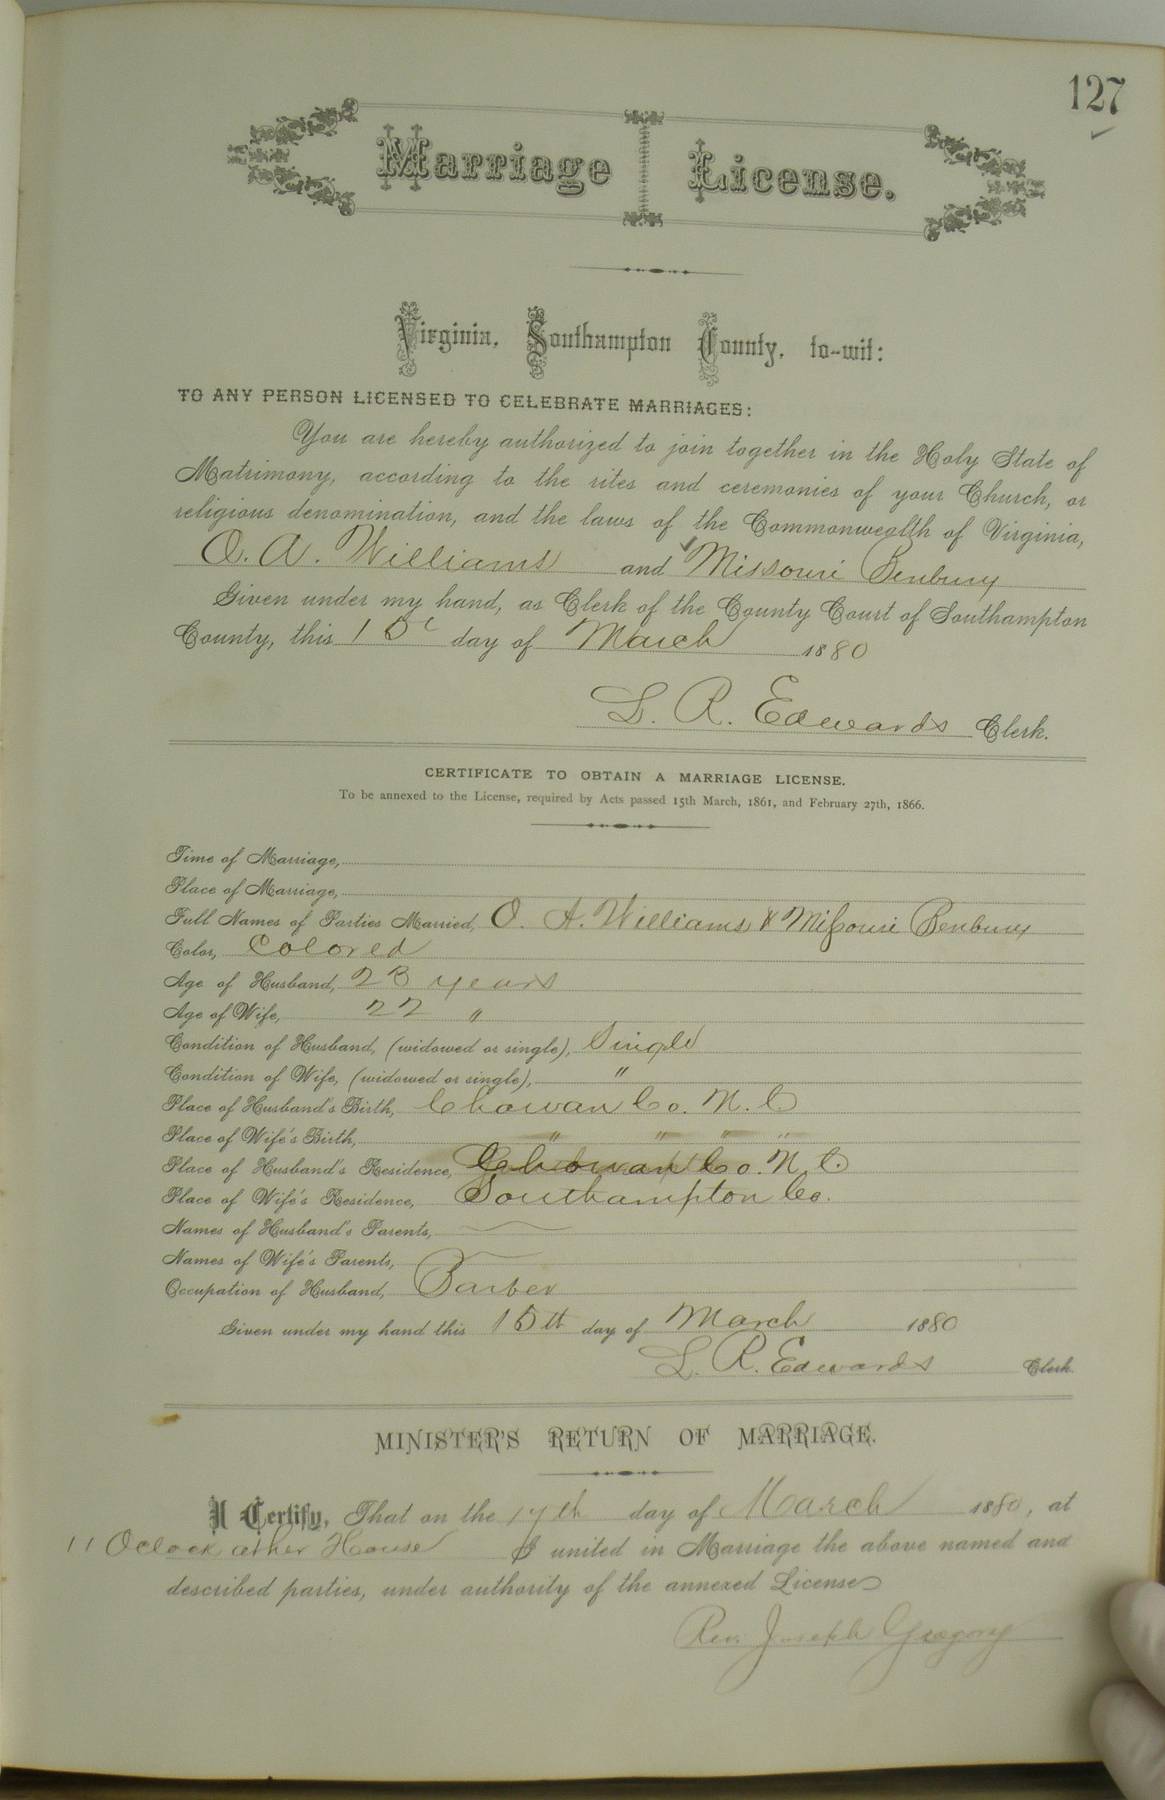 127
Marriage License.
Virginia, Southampton County, to-wit:
TO ANY PERSON LICENSED TO CELEBRATE MARRIAGES:
You are hereby authorized to join together in the Holy State of
Matrimony, according to the rites and ceremonies of your Church, or
religious denomination, and the laws of the Commonwealth of Virginia,
O. A. Williams and Missouri Benbury
Given under my hand, as Clerk of the County Court of Southampton
County, this 15 day of March 1880
L. R. Edwards Clerk.
CERTIFICATE TO OBTAIN A MARRIAGE LICENSE.
To be annexed to the License, required by Acts passed 15th March, 1861, and February 27th, 1866.
Time of Marriage,
Place of Marriage,
Full Names of Parties Married, O. A. Williams & Missouri Benbury
Color, Colored
Age of Husband, 23 years
Age of Wife, 22 "
Condition of Husband, (widowed or single), Single
Condition of Wife, (widowed or single), "
Place of Husband's Birth, Chowan Co. N. C.
Place of Wife's Birth, " " " "
Place of Husband's Residence, Chowan Co. N. C.
Place of Wife's Residence, Southampton Co.
Names of Husband's Parents,
Names of Wife's Parents,
Occupation of Husband, Barber
Given under my hand this 15th day of March 1880
L. R. Edwards Clerk.
MINISTER'S RETURN OF MARRIAGE.
I Certify, That on the 17th day of March 1880, at
11 Oclock at her House I united in Marriage the above named and
described parties, under authority of the annexed License
Rev. Joseph Gregory